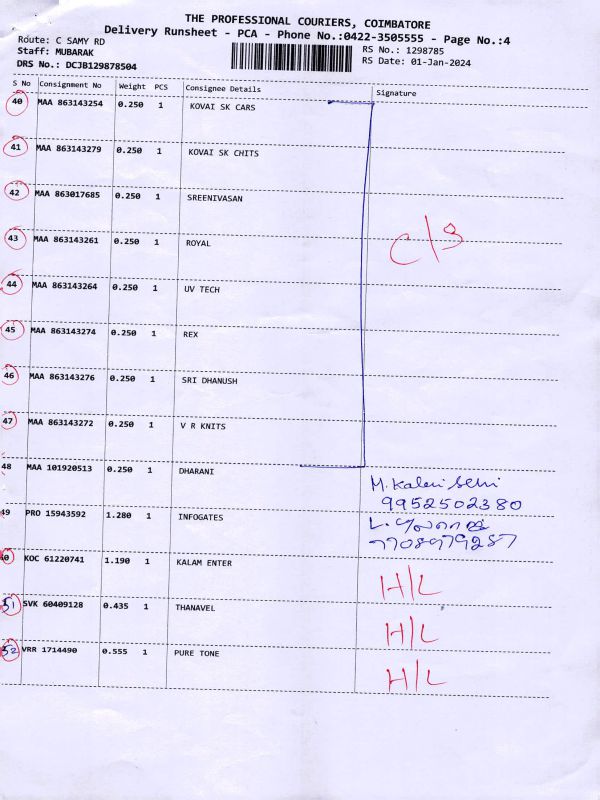 THE PROFESSIONAL COURIERS, COIMBATORE
Delivery Runsheet - PCA - Phone No.:0422-3505555 - Page No.:4
Route: C SAMY RD
Staff: MUBARAK
DRS No.: DCJB129878504
RS No.: 1298785
RS Date: 01-Jan-2024
S No Consignment No Weight PCS Consignee Details Signature
40 MAA 863143254 0.250 1 KOVAI SK CARS
41 MAA 863143279 0.250 1 KOVAI SK CHITS
42 MAA 863017685 0.250 1 SREENIVASAN
43 MAA 863143261 0.250 1 ROYAL
C/S
44 MAA 863143264 0.250 1 UV TECH
45 MAA 863143274 0.250 1 REX
46 MAA 863143276 0.250 1 SRI DHANUSH
47 MAA 863143272 0.250 1 V R KNITS
48 MAA 101920513 0.250 1 DHARANI M. Kalai Selvi
9952502380
49 PRO 15943592 1.280 1 INFOGATES
7708979287
KOC 61220741 1.190 1 KALAM ENTER H/L
51 SVK 60409128 0.435 1 THANAVEL H/L
52 VRR 1714490 0.555 1 PURE TONE H/L